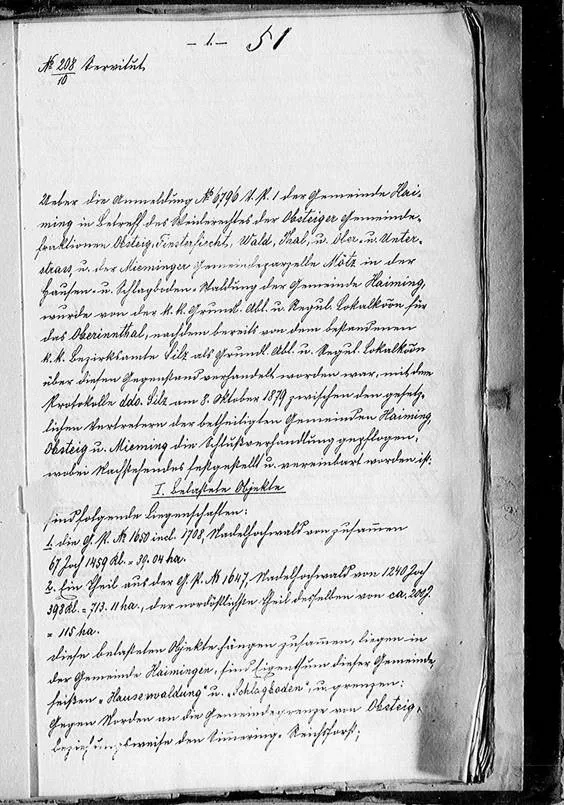 - 1. - 51
№ 208/10 Servitut.
Ueber die Anmeldung № 6796 A. P. 1 der Gemeinde Hai-
ming in Betreff des Weiderechtes der Obsteiger Gemeinde-
fraktionen Obsteig, Finsterfiecht, Wald, Thal, u. Ober- u. Unter-
strass u. der Mieminger Gemeindeparzelle Mötz in der
Hausen- u. Schlagboden-Waldung der Gemeinde Haiming,
wurde von der k. k. Grundl. Abl. u. Regul. Lokalkõõn für
das Oberinnthal, nachdem bereits von dem bestandenen
k. k. Bezirksamte Silz als Grundl. Abl. u. Regul. Lokalkõõn
über diesen Gegenstand verhandelt worden war, mit dem
Protokolle ddo. Silz am 8. Oktober 1879 zwischen den gesetz-
lichen Vertretern der betheiligten Gemeinden Haiming,
Obsteig u. Mieming die Schlußverhandlung gepflogen,
wobei Nachstehendes festgestellt u. vereinbart worden ist:
I. Belastete Objekte
sind folgende Liegenschaften:
1. die G. P. № 1650 incl. 1708, Nadelhochwald von zusammen
67 Joch 1459 Kl. = 39.04 ha.
2. Ein Theil aus der G. P. № 1647, Nadelhochwald von 1240 Joch
398 Kl. = 713.11 ha., der nordöstlichste Theil desselben von ca. 200 J.
= 115 ha.
Diese belasteten Objekte hängen zusammen, liegen in
der Gemeinde Haimingen, sind Eigenthum dieser Gemeinde,
heißen „Hausenwaldung" u. „Schlagboden", u. grenzen:
Gegen Norden an die Gemeindegrenze von Obsteig,
beziehungsweise den Simmering-Reichsforst;